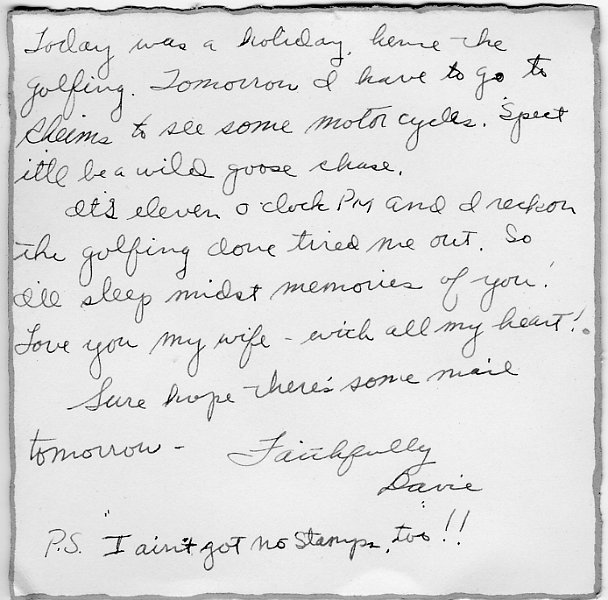 Today was a holiday, hence the
golfing. Tomorrow I have to go to
Rheims to see some motorcycles. 'Spect
it'll be a wild goose chase.
It's eleven o'clock PM and I reckon
the golfing done tired me out. So
I'll sleep midst memories of you!
Love you my wife - with all my heart!
Sure hope there's some mail
tomorrow -
Faithfully
Davie
P.S. "I ain't got no stamps, too"!!